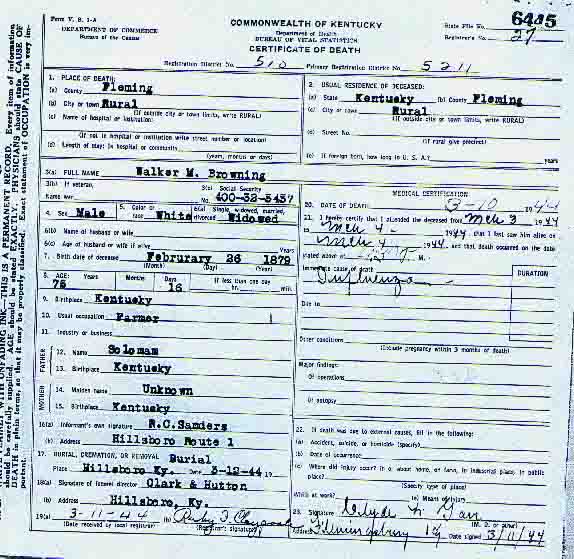 Form V. S. 1-A
DEPARTMENT OF COMMERCE
Bureau of the Census
COMMONWEALTH OF KENTUCKY
Department of Health
BUREAU OF VITAL STATISTICS
CERTIFICATE OF DEATH
State File No. 6445
Registrar's No. 27
Registration District No. 510 Primary Registration District No. 5211
1. PLACE OF DEATH:
(a) County Fleming
(b) City or town Rural
(If outside city or town limits, write RURAL)
(c) Name of hospital or institution:
(If not in hospital or institution write street number or location)
(d) Length of stay: In hospital or community
(years, months or days)
2. USUAL RESIDENCE OF DECEASED:
(a) State Kentucky (b) County Fleming
(c) City or town Rural
(If outside city or town limits, write RURAL)
(d) Street No.
(If rural give precinct)
(e) If foreign born, how long in U. S. A.? years
3(a) FULL NAME Walker M. Browning
3(b) If veteran,
Name war
3(c) Social Security
No. 400-32-5457
4. Sex Male 5. Color or race White 6(a) Single, widowed, married, divorced Widowed
6(b) Name of husband or wife
6(c) Age of husband or wife if alive Years
7. Birth date of deceased Februrary 26 1879
(Month) (Day) (Year)
8. AGE: Years Months Days If less than one day
75 16 hr. min.
9. Birthplace Kentusky
10. Usual occupation Farmer
11. Industry or business
FATHER
12. Name Solomam
13. Birthplace Kentucky
MOTHER
14. Maiden name Unknown
15. Birthplace Kentucky
16(a) Informant's own signature R.C.Sanders
(b) Address Hillsboro Route 1
17. BURIAL, CREMATION, OR REMOVAL Burial
Place Hillsboro Ky. Date 3-12-44 19
18(a) Signature of funeral director Clark & Hutton
(b) Address Hillsboro, Ky.
19(a) 3-11-44 (b)
(Date received by local registrar) (Registrar's signature)
MEDICAL CERTIFICATION
20. DATE OF DEATH 3-10 1944
21. I hereby certify that I attended the deceased from Mch 3 1944
to Mch 4 1944, that I last saw him alive on
Mch 4 1944, and that death occurred on the date
stated above at M.
Immediate cause of death DURATION
Influenza
Due to
Other conditions
(Include pregnancy within 3 months of death)
Major findings:
Of operations
Of autopsy
22. If death was due to external causes, fill in the following:
(a) Accident, suicide, or homicide (specify)
(b) Date of occurrence
(c) Where did injury occur? in or about home, on farm, in industrial place, in public
place?
(Specify type of place)
While at work? (e) Means of injury
23. Signature Clyde
(M. D. or other)
Address Flemingsburg Ky Date signed 3/11/44
WITH UNFADING INK—THIS IS A PERMANENT RECORD. Every item of information
should be carefully supplied. AGE should be stated EXACTLY. PHYSICIANS should state CAUSE OF
DEATH in plain terms, so that it may be properly classified. Exact statement of OCCUPATION is very im-
portant.